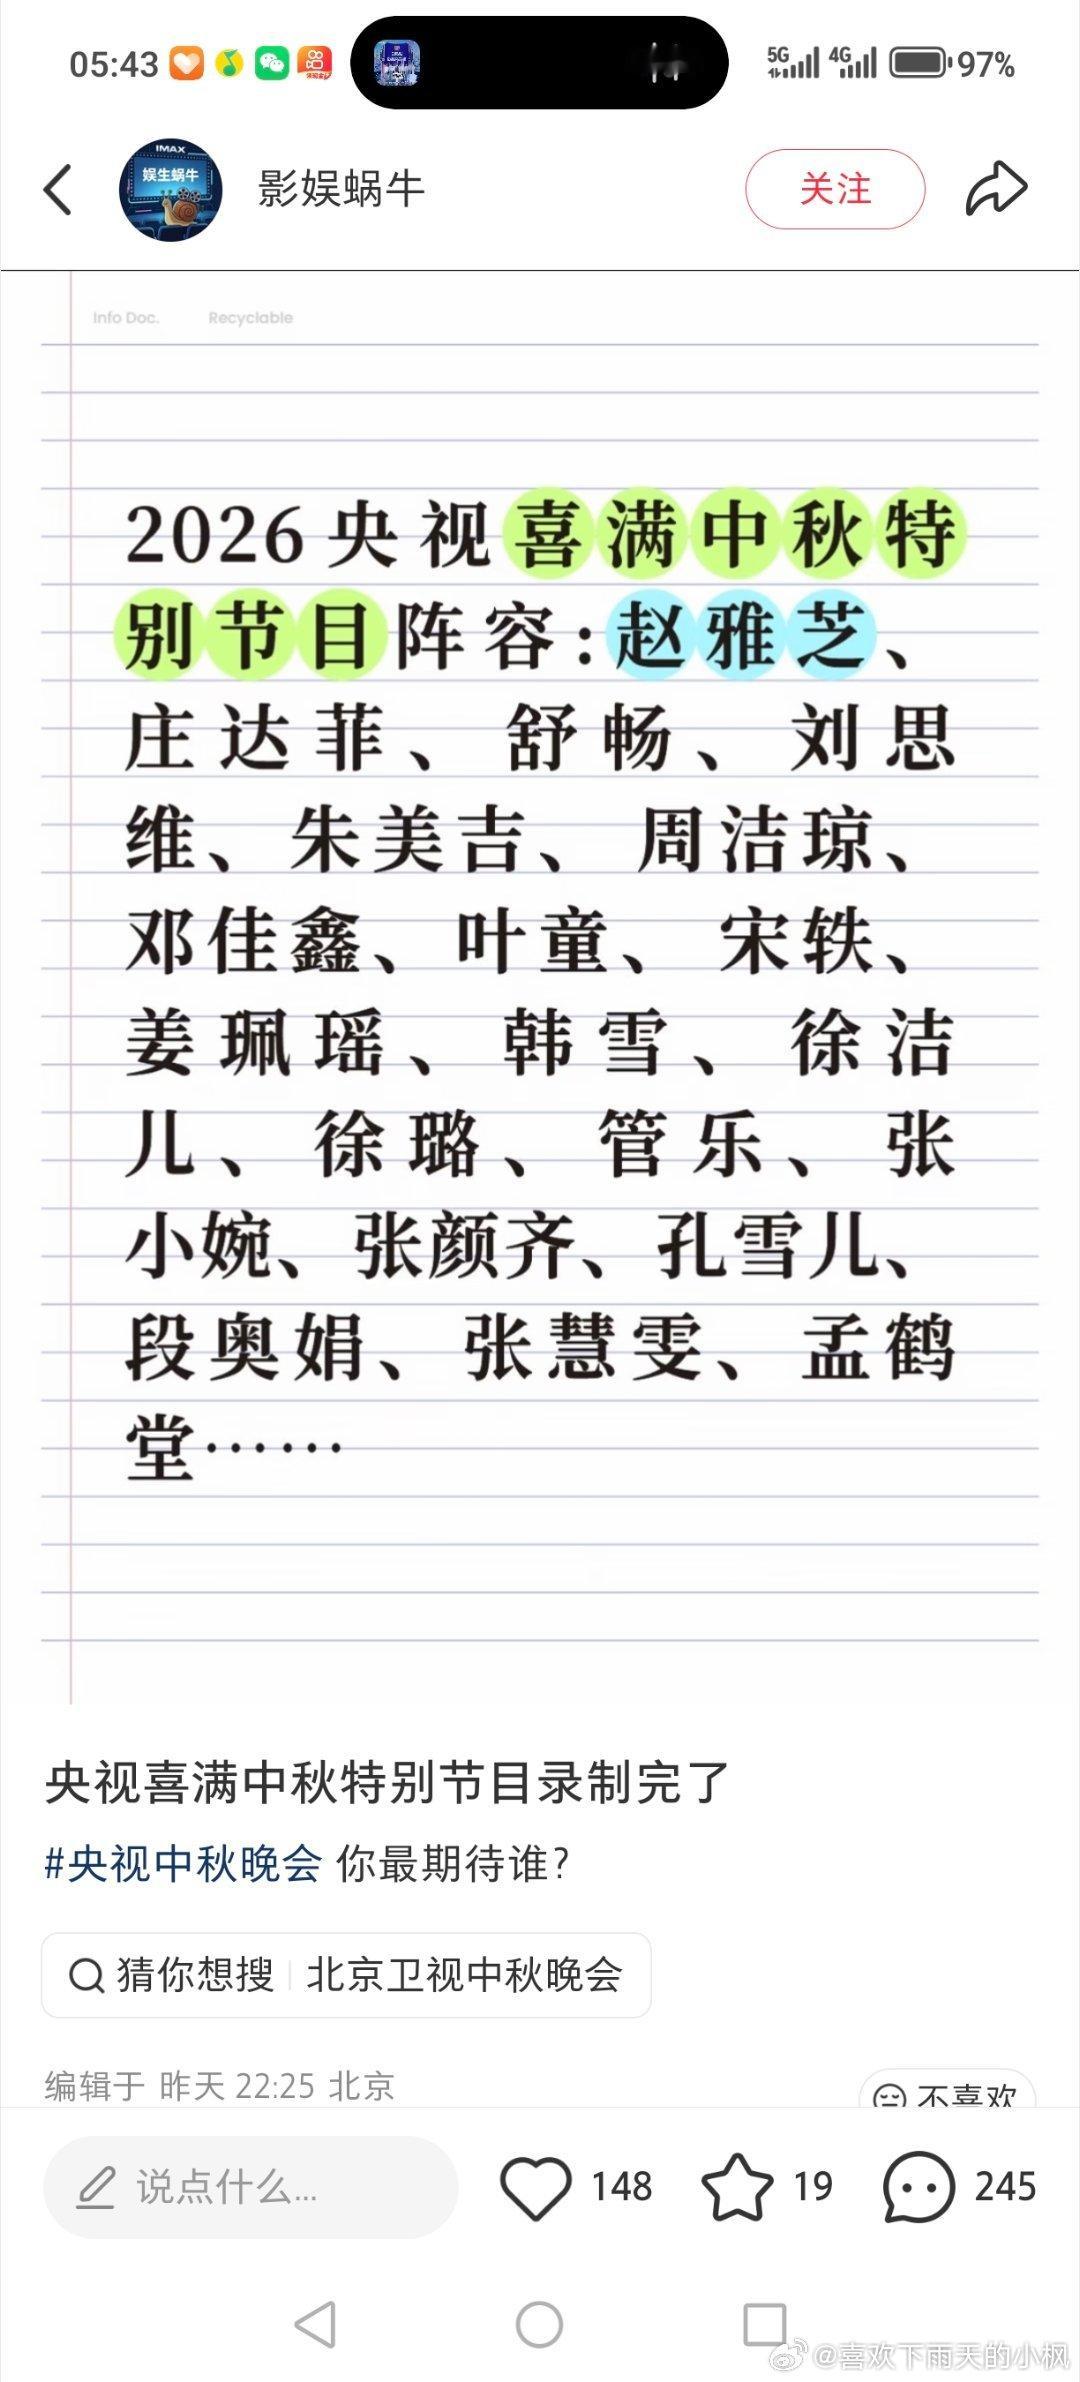 05:43
5G 4G 97%
IMAX
娱生蜗牛
影娱蜗牛
关注
Info Doc. Recyclable
2026央视喜满中秋特
别节目阵容:赵雅芝、
庄达菲、舒畅、刘思
维、朱美吉、周洁琼、
邓佳鑫、叶童、宋轶、
姜珮瑶、韩雪、徐洁
儿、徐璐、管乐、张
小婉、张颜齐、孔雪儿、
段奥娟、张慧雯、孟鹤
堂······
央视喜满中秋特别节目录制完了
#央视中秋晚会 你最期待谁?
猜你想搜 北京卫视中秋晚会
编辑于 昨天 22:25 北京
不喜欢
说点什么...
148
19
245
@喜欢下雨天的小枫